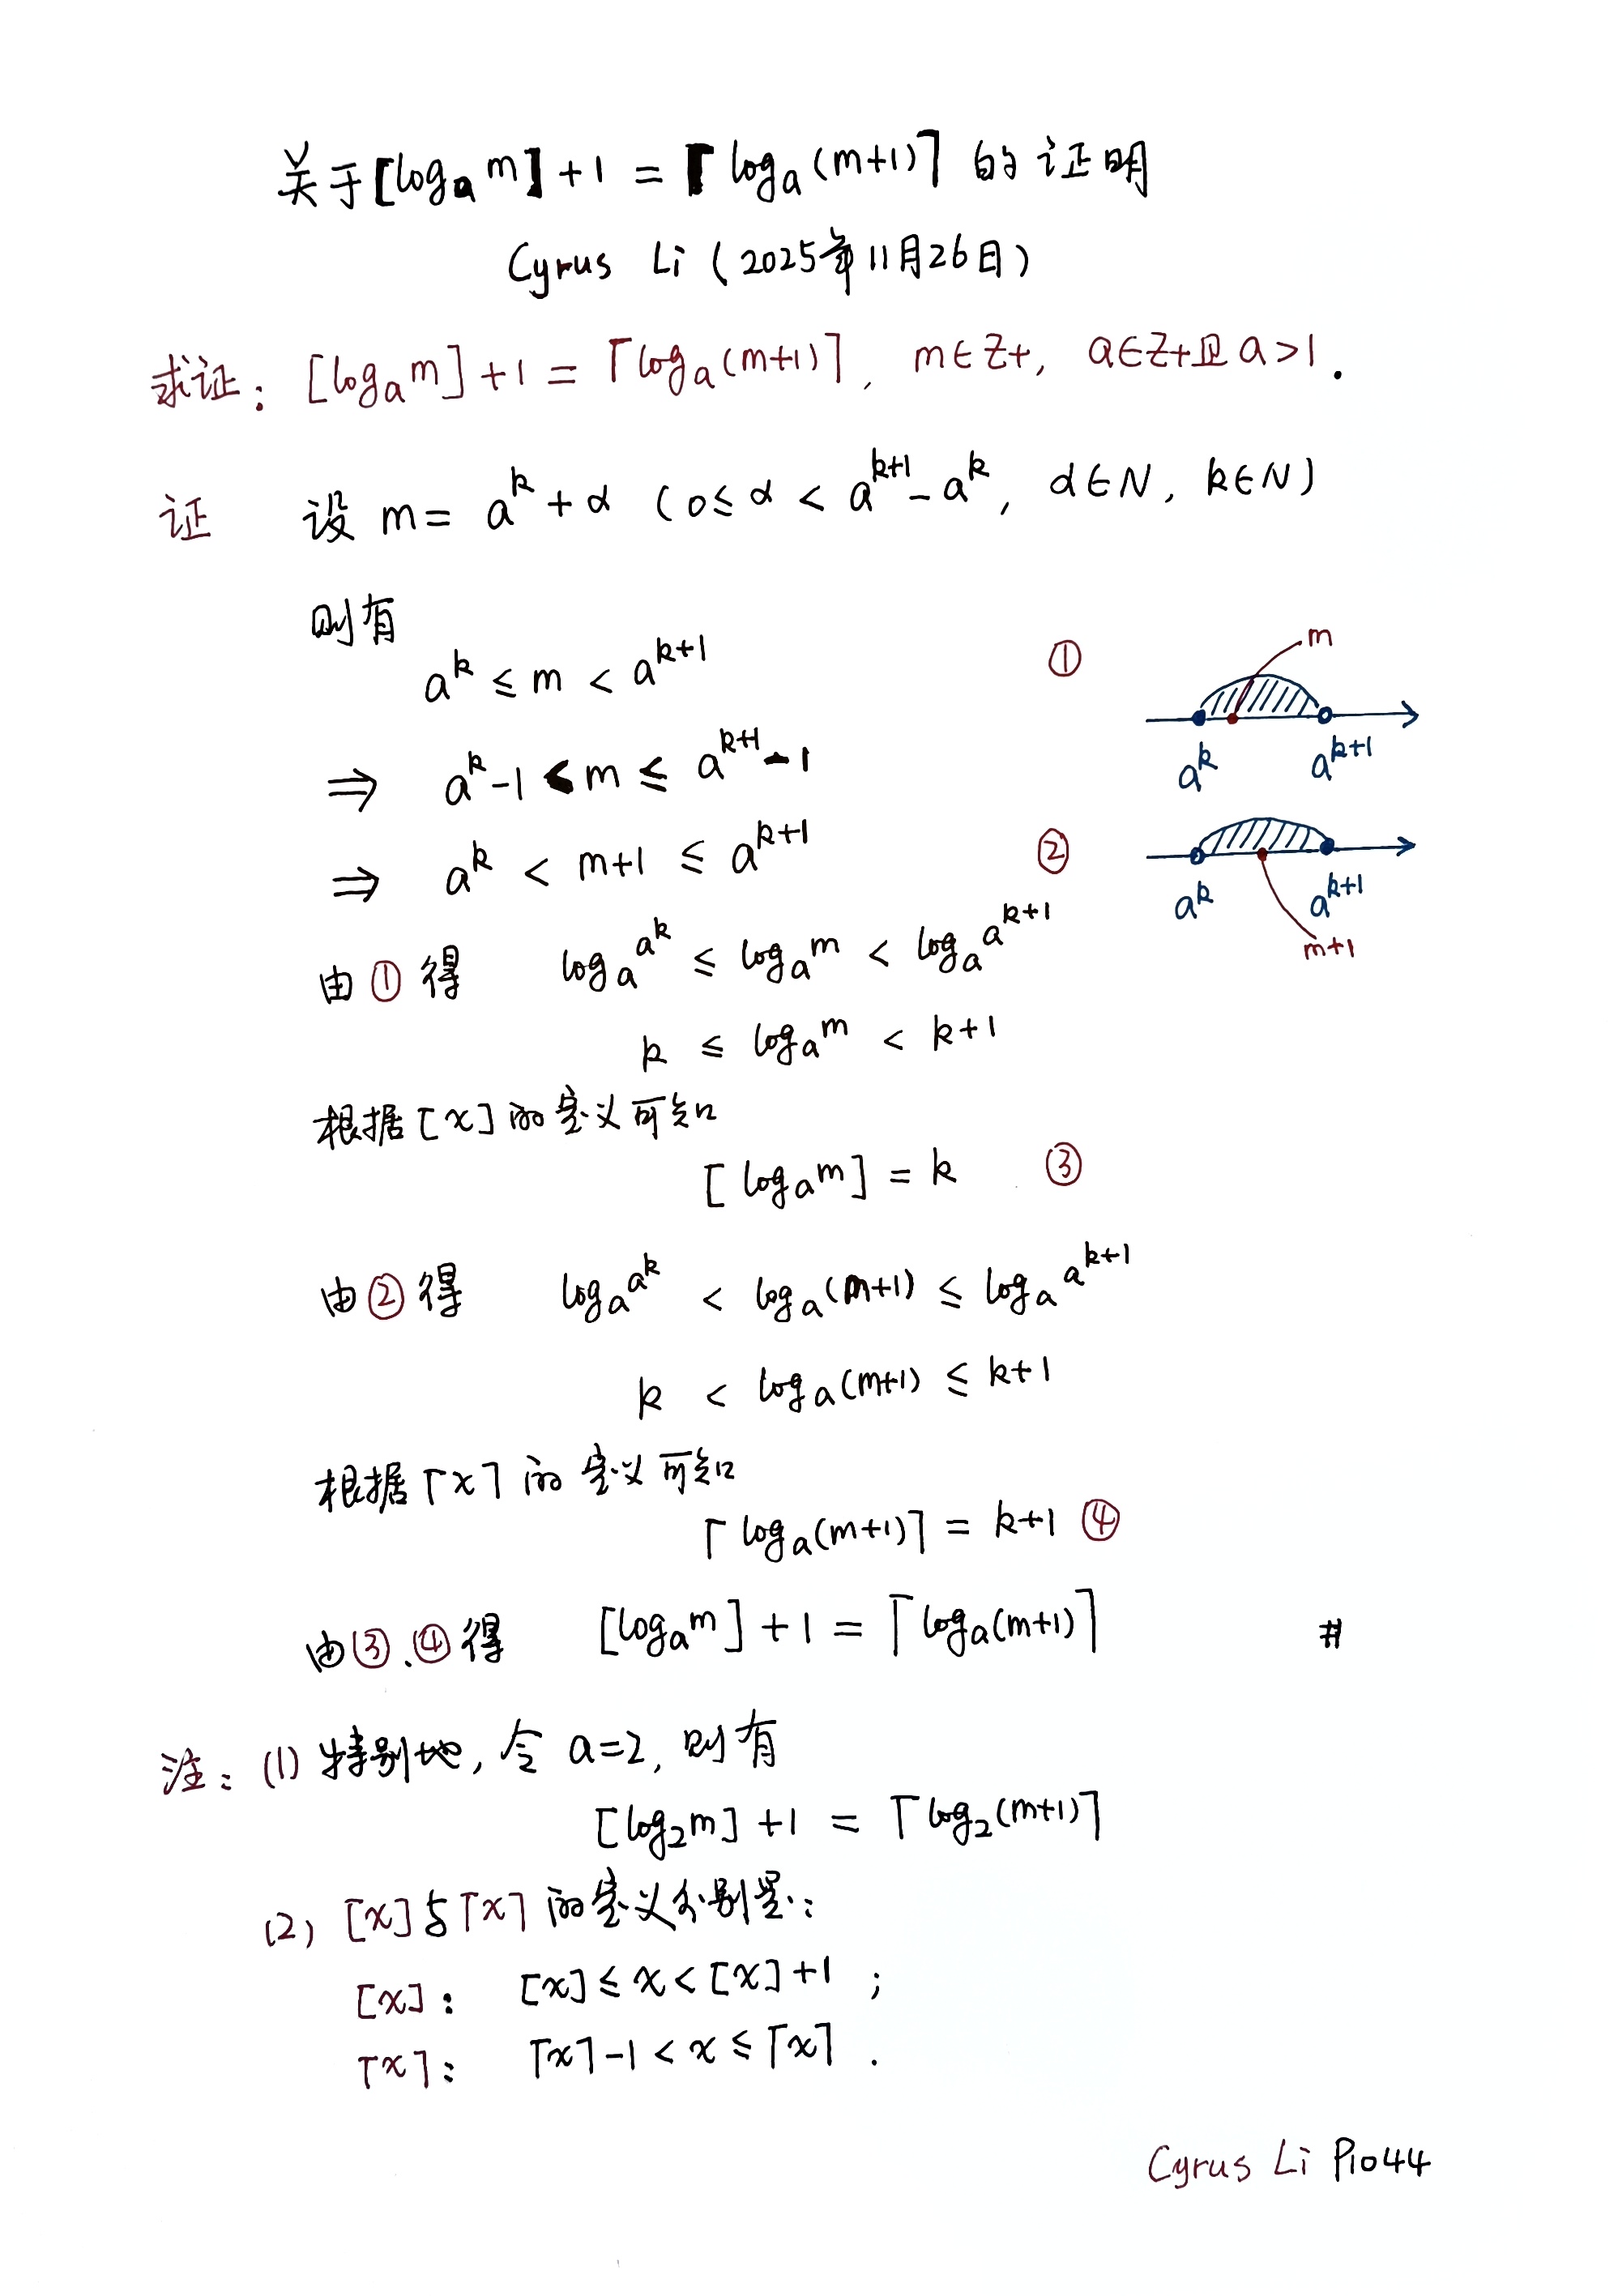 关于[logₐm]+1 = ⌈logₐ(m+1)⌉ 的证明
Cyrus Li (2025年11月26日)
求证: [logₐm]+1 = ⌈logₐ(m+1)⌉, m∈Z+, a∈Z+且a>1.
证 设 m = a^k + α (0 ≤ α < a^{k+1} - a^k, α∈N, k∈N)
则有
a^k ≤ m < a^{k+1} ①
m
a^k a^{k+1}
⇒ a^k - 1 < m ≤ a^{k+1} - 1
⇒ a^k < m+1 ≤ a^{k+1} ②
a^k a^{k+1}
m+1
由①得 logₐa^k ≤ logₐm < logₐa^{k+1}
k ≤ logₐm < k+1
根据[x]的定义可知
[logₐm] = k ③
由②得 logₐa^k < logₐ(m+1) ≤ logₐa^{k+1}
k < logₐ(m+1) ≤ k+1
根据⌈x⌉的定义可知
⌈logₐ(m+1)⌉ = k+1 ④
由③、④得 [logₐm]+1 = ⌈logₐ(m+1)⌉ #
注: (1) 特别地, 令 a=2, 则有
[log₂m]+1 = ⌈log₂(m+1)⌉
(2) [x]与⌈x⌉的定义分别是:
[x]: [x] ≤ x < [x]+1 ;
⌈x⌉: ⌈x⌉-1 < x ≤ ⌈x⌉ .
Cyrus Li P1044